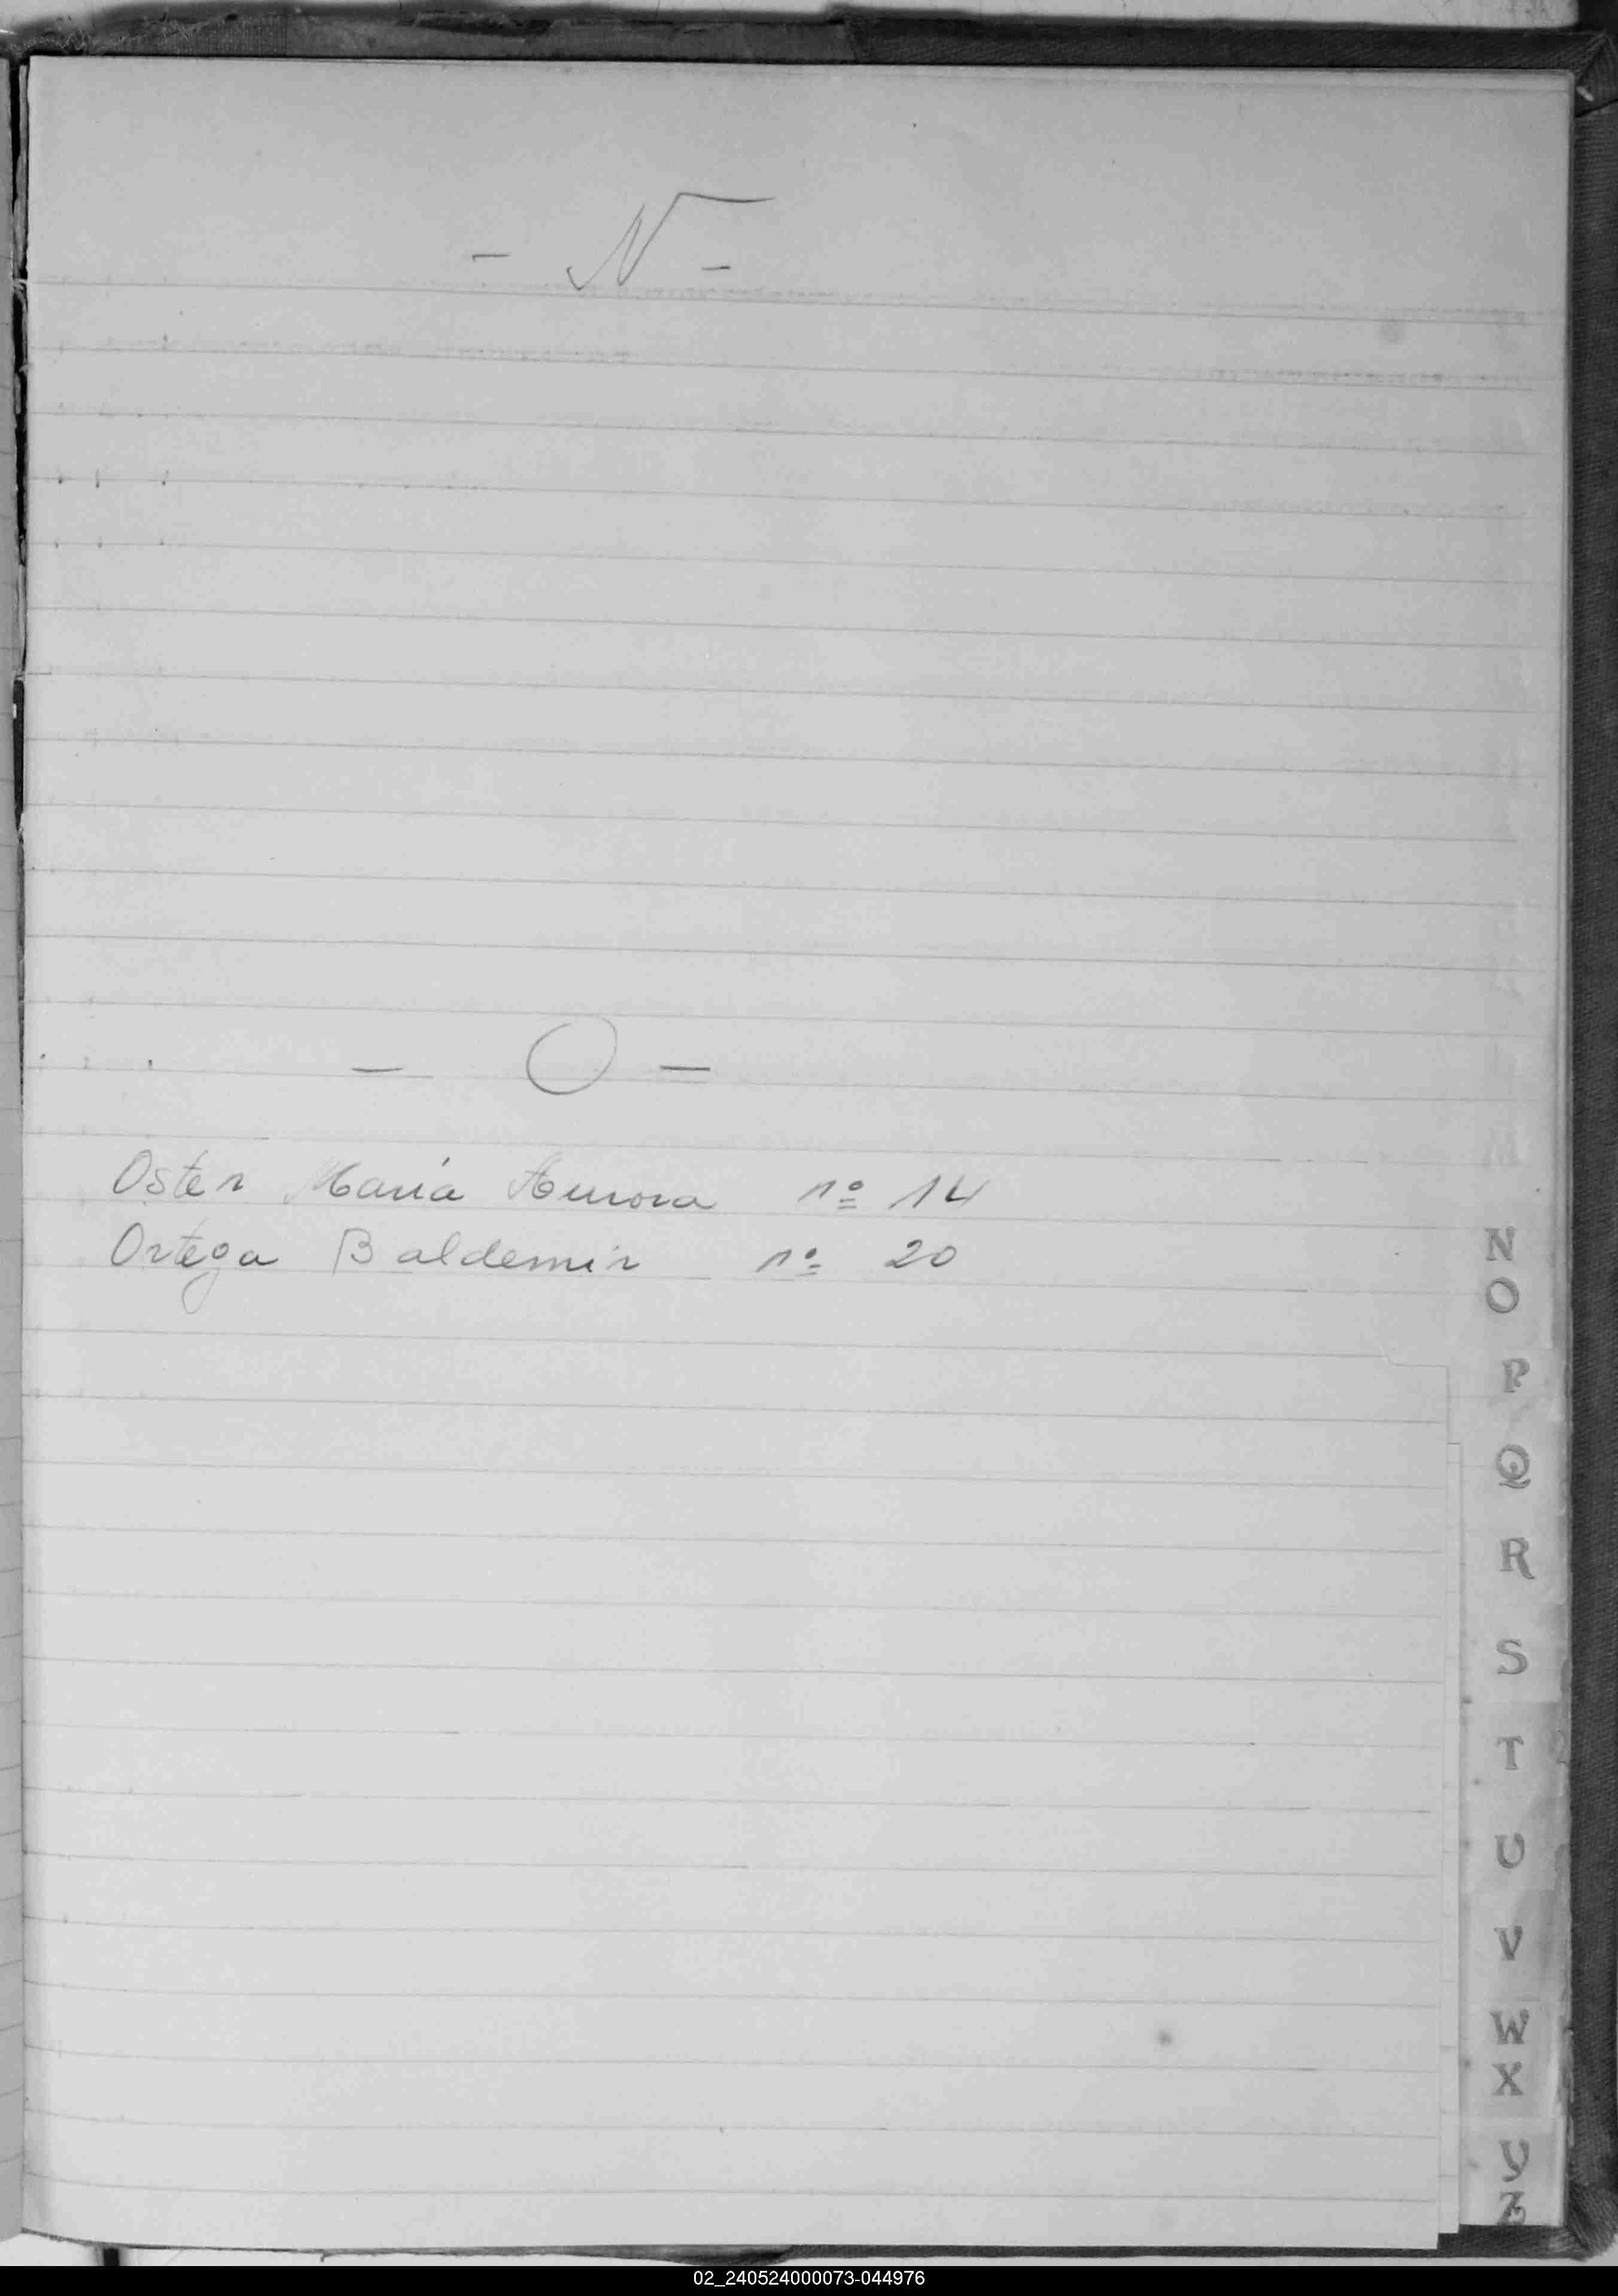 - N -
- O -
Oster María Aurora nº 14
Ortega Baldemir nº 20
N
O
P
Q
R
S
T
U
V
W
X
Y
Z
02_240524000073-044976